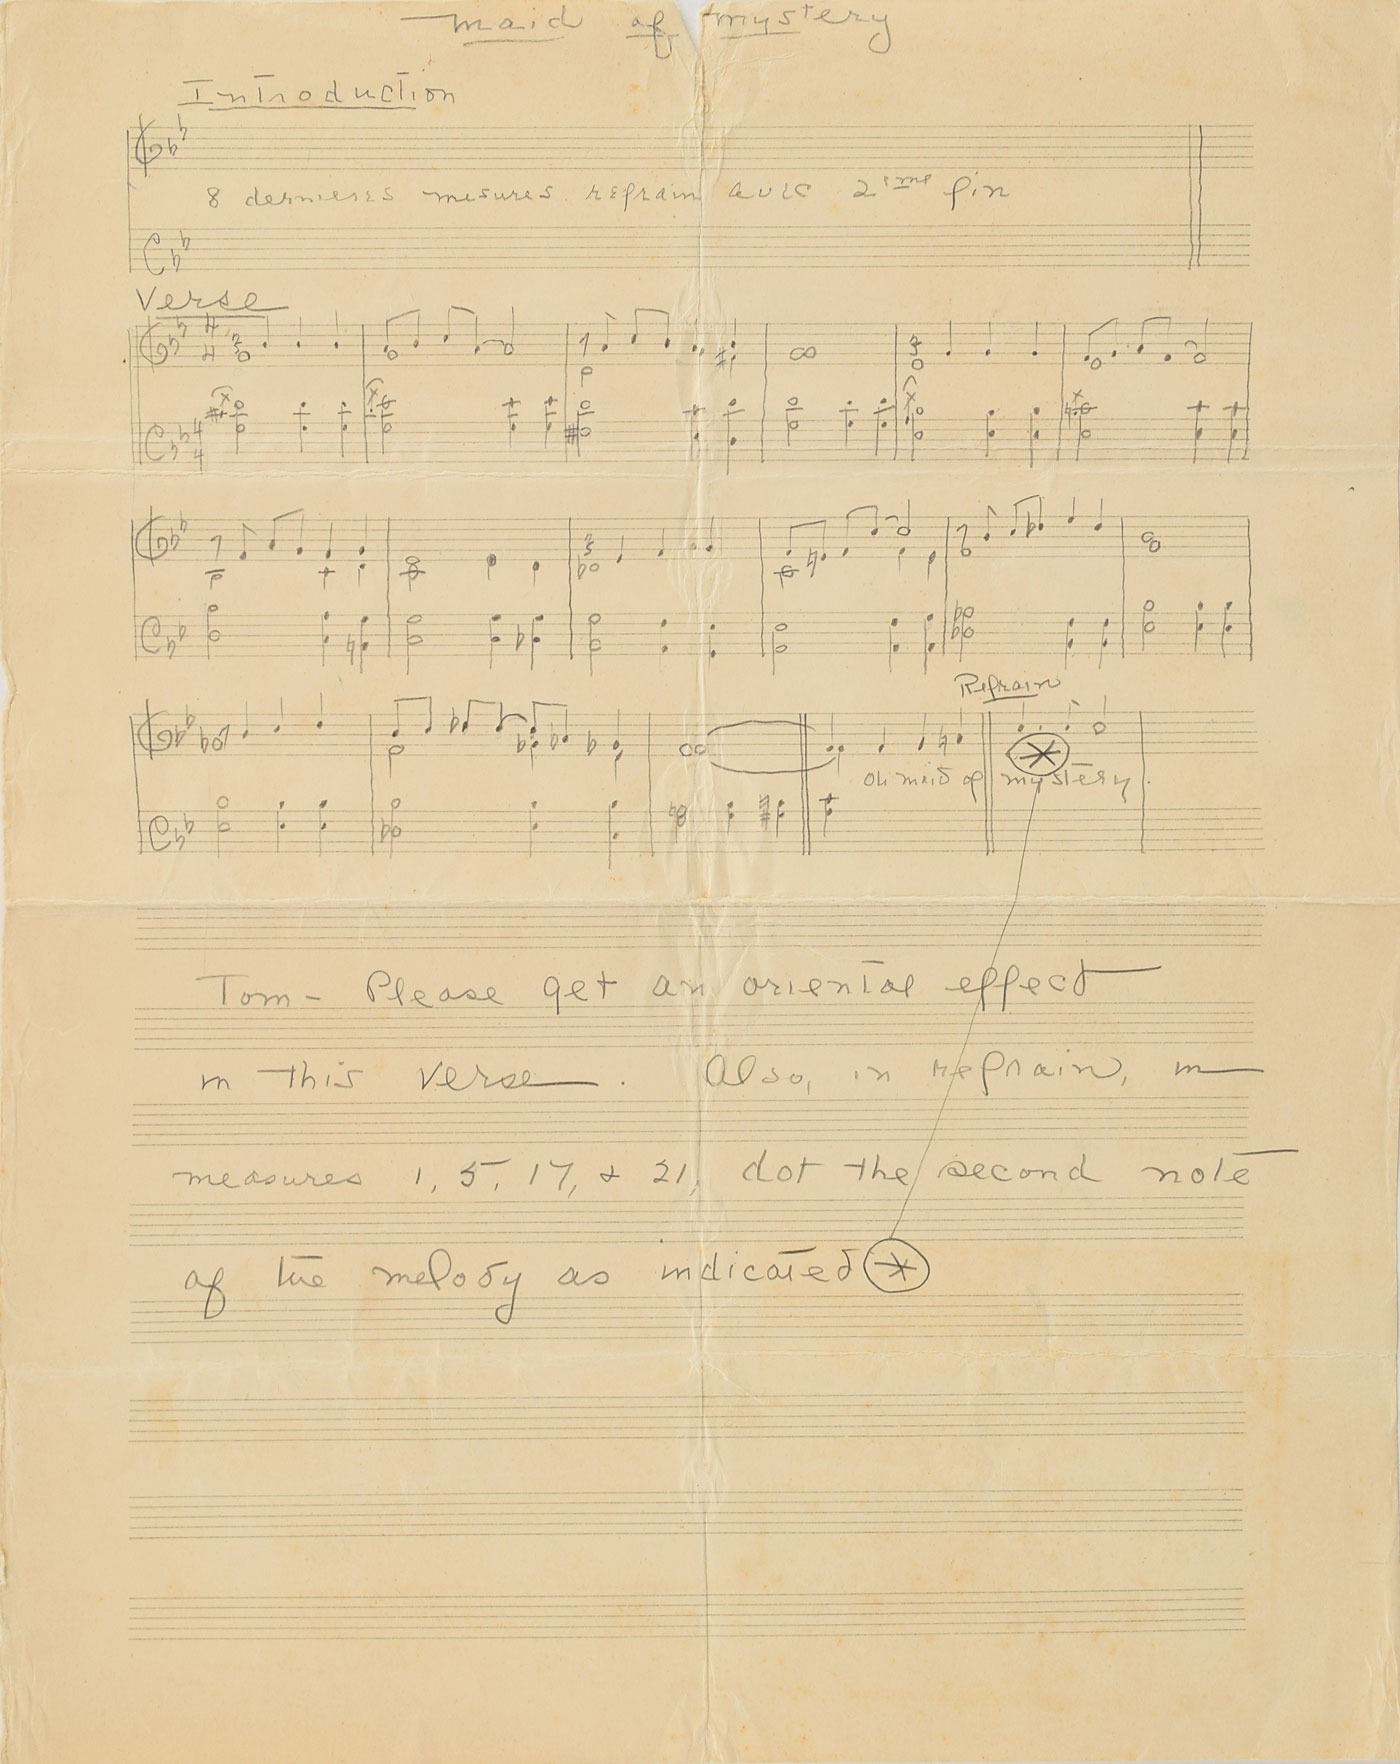 Maid of Mystery
Introduction
8 dernieres mesures refrain avec 2ième fin
Verse
4 4
4 4
Refrain
Oh maid of mystery.
Tom - Please get an oriental effect
in this verse. Also, in refrain, in
measures 1, 5, 17, & 21, dot the second note
of the melody as indicated *